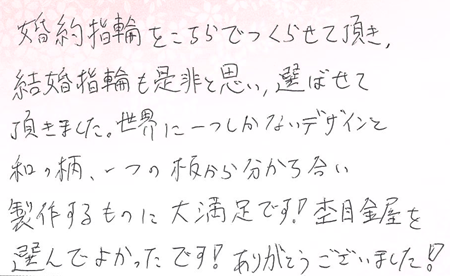 婚約指輪をこちらでつくらせて頂き,
結婚指輪も是非と思い,選ばせて
頂きました。世界に一つしかないデザインと
和の柄、一つの板から分かち合い
製作するものに大満足です!杢目金屋を
選んでよかったです!ありがとうございました!!